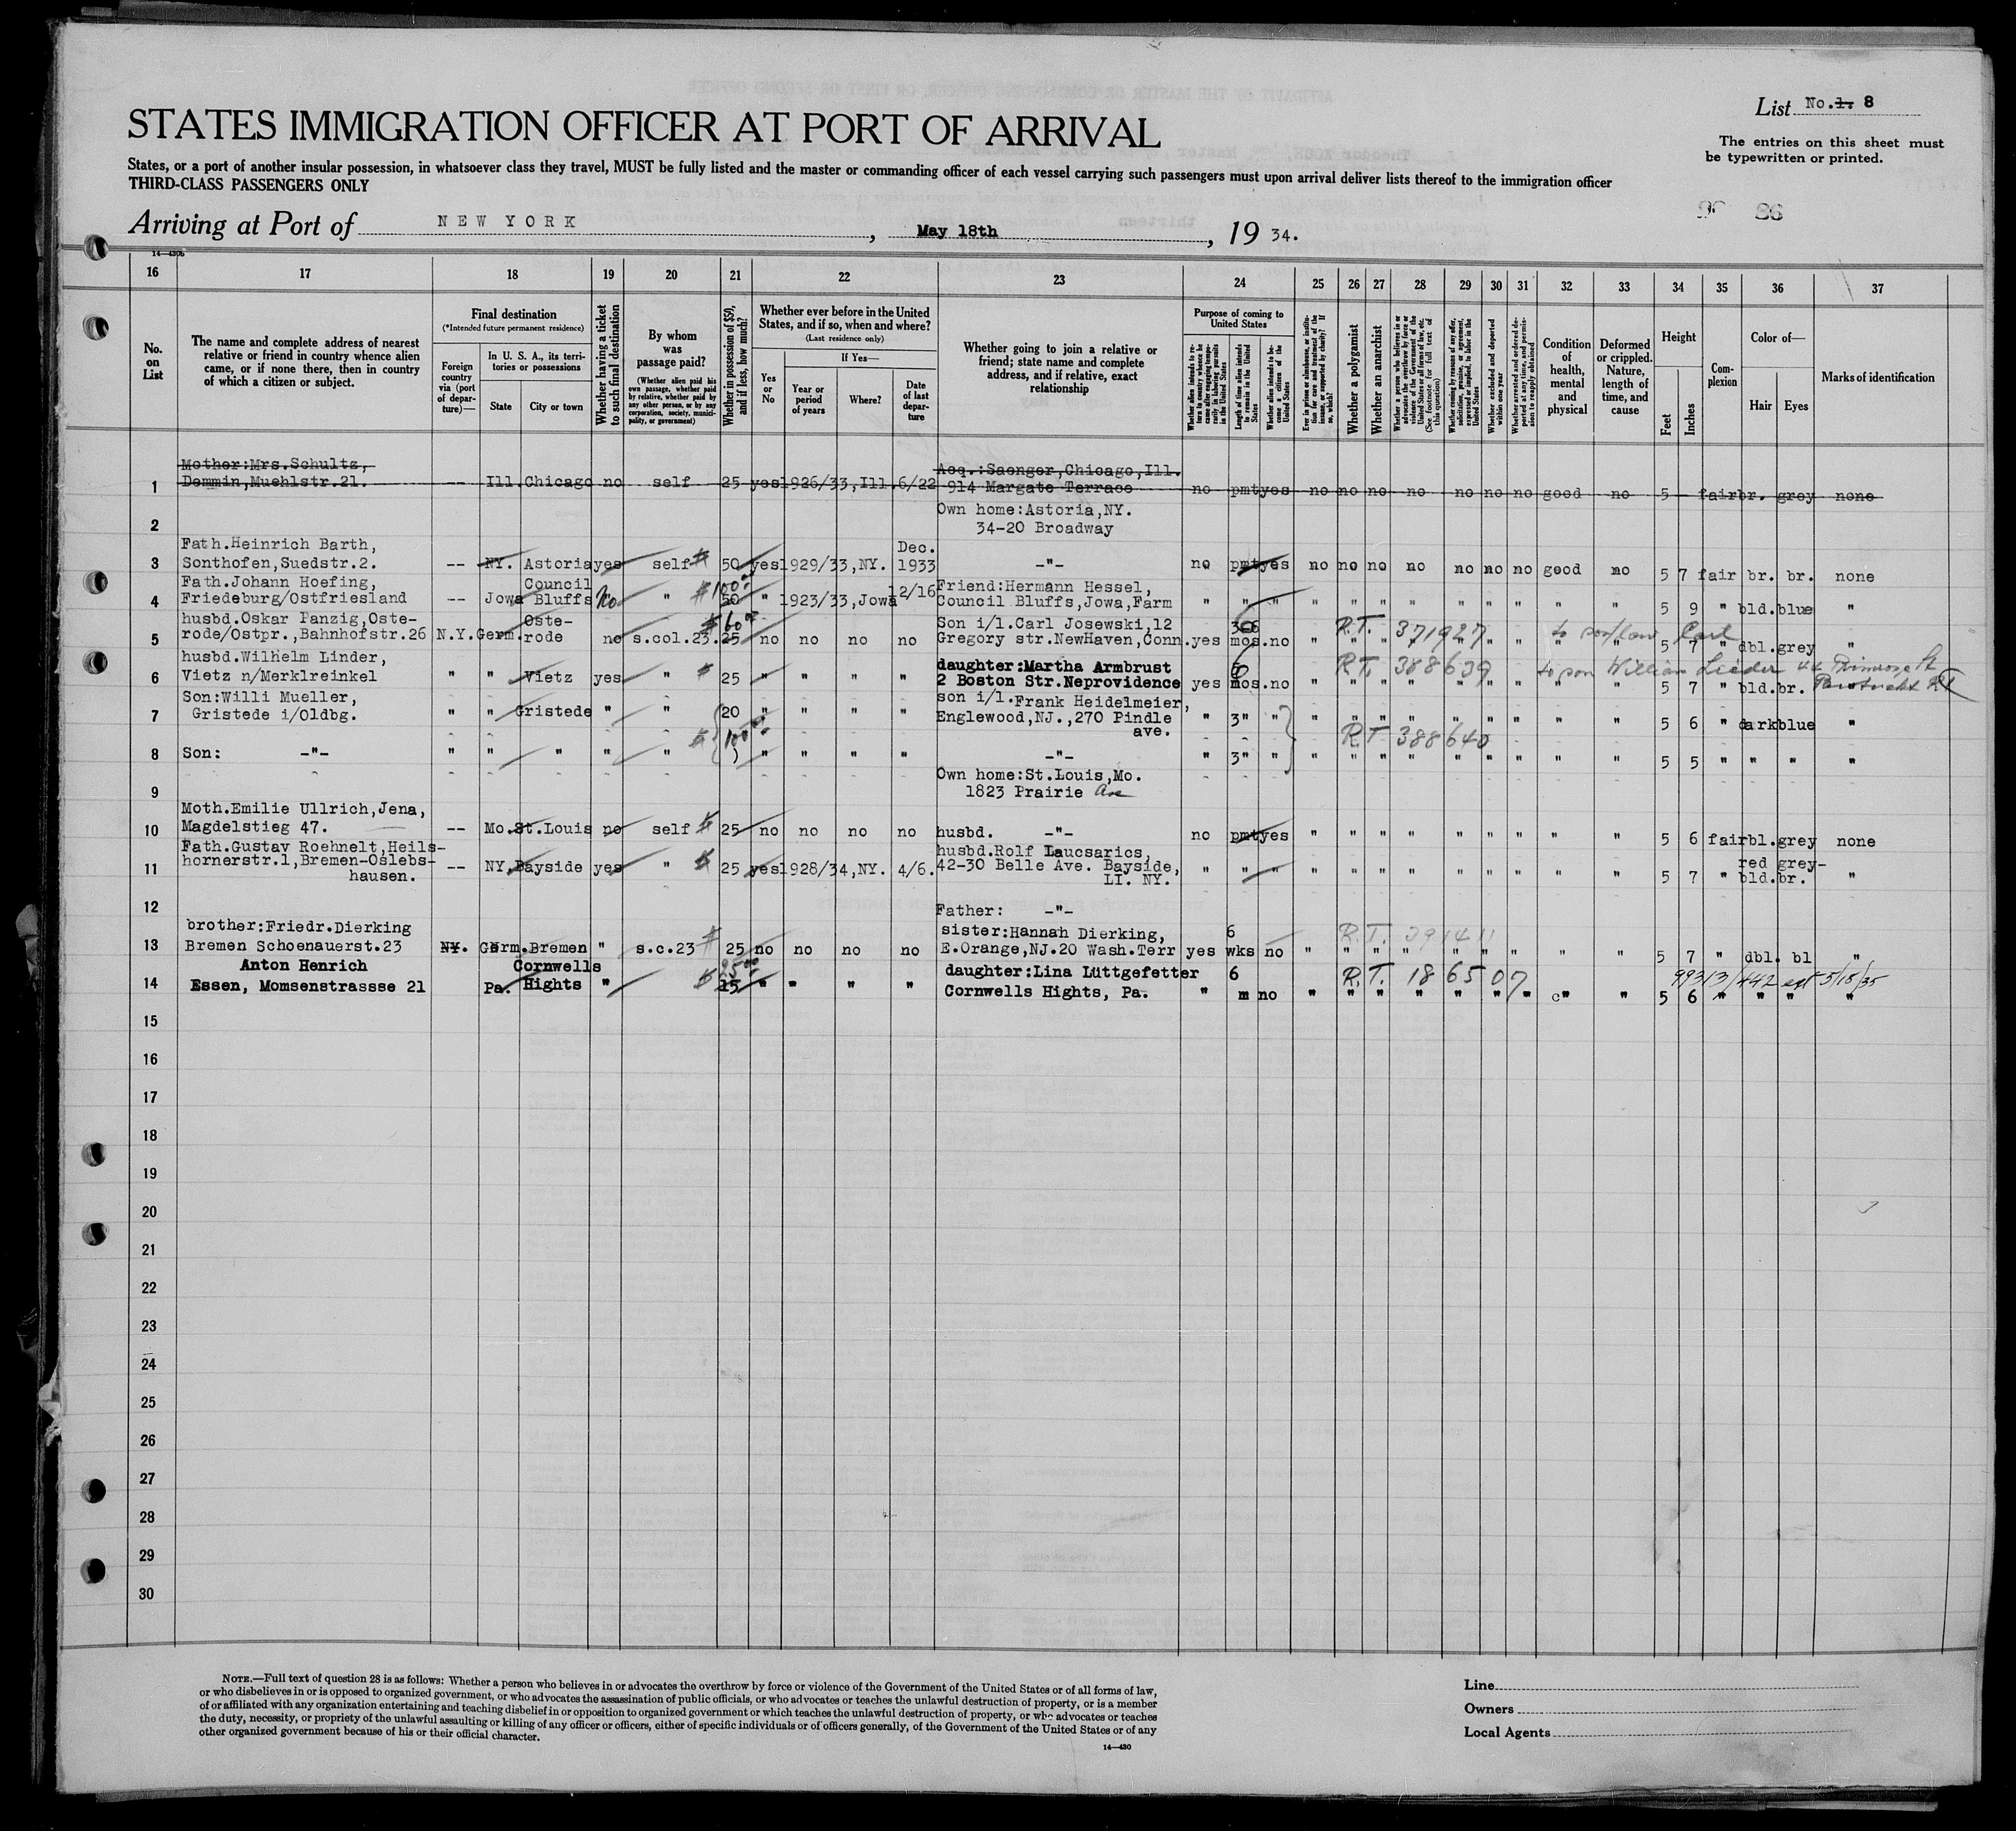 List No. 1. 8
STATES IMMIGRATION OFFICER AT PORT OF ARRIVAL
The entries on this sheet must
be typewritten or printed.
States, or a port of another insular possession, in whatsoever class they travel, MUST be fully listed and the master or commanding officer of each vessel carrying such passengers must upon arrival deliver lists thereof to the immigration officer
THIRD-CLASS PASSENGERS ONLY
Arriving at Port of NEW YORK, May 18th, 19 34.
86
16 17 18 19 20 21 22 23 24 25 26 27 28 29 30 31 32 33 34 35 36 37
No. on List
The name and complete address of nearest relative or friend in country whence alien came, or if none there, then in country of which a citizen or subject.
Final destination
(*Intended future permanent residence)
Foreign country via (port of departure)—
In U. S. A., its territories or possessions
State
City or town
Whether having a ticket to such final destination
By whom was passage paid?
(Whether alien paid his own passage, whether paid by relative, whether paid by any other person, or by any corporation, society, municipality, or government)
Whether in possession of $50, and if less, how much?
Whether ever before in the United States, and if so, when and where?
(Last residence only)
Yes or No
If Yes—
Year or period of years
Where?
Date of last departure
Whether going to join a relative or friend; state name and complete address, and if relative, exact relationship
Purpose of coming to United States
Length of time alien intends to remain in the United States
Whether alien intends to become a citizen of the United States
Whether a polygamist
Whether an anarchist
Condition of health, mental and physical
Deformed or crippled. Nature, length of time, and cause
Height
Feet
Inches
Complexion
Color of—
Hair
Eyes
Marks of identification
Mother:Mrs.Schultz, Aoq.:Saenger,Chicago,Ill.
1 Demmin,Muehlstr.21. -- Ill.Chicago no self 25 yes1926/33,Ill.6/22 914 Margate Terrace no pmtyes no no no no no no no good no 5 - fairbr. grey none
Own home:Astoria,NY.
2 34-20 Broadway
Fath.Heinrich Barth, Dec.
3 Sonthofen,Suedstr.2. -- NY. Astoriayes self 50 yes1929/33,NY. 1933 -"- no pmtyes no no no no no no no good no 5 7 fair br. br. none
Fath.Johann Hoefing, Council $100 12/16 Friend:Hermann Hessel,
4 Friedeburg/Ostfriesland -- Jowa Bluffs No " 50 " 1923/33,Jowa Council Bluffs,Jowa,Farm " " " " " " " " " " " " 5 9 " bld.blue "
husbd.Oskar Panzig,Oste- Oste- $60 Son i/l.Carl Josewski,12 R.T. 371927 to son/law Carl
5 rode/Ostpr.,Bahnhofstr.26 N.Y.Germ.rode no s.col.23.25 no no no no Gregory str.NewHaven,Conn.yes mos.no " " " " " " " " " 5 7 " dbl.grey "
husbd.Wilhelm Linder, daughter:Martha Armbrust 6 R.T. 388639 to son William
6 Vietz n/Merklreinkel " " Vietz yes " 25 " " " " 2 Boston Str.Neprovidence yes mos.no " " " " " " " " " 5 7 " bld.br.
Son:Willi Mueller, son i/l.Frank Heidelmeier,
7 Gristede i/Oldbg. " " Gristede " " 20 " " " " Englewood,NJ.,270 Pindle " 3" " " " " " " " " " " 5 6 " darkblue "
100 ave. R.T 388640
8 Son: -"- " " " " " " " " " -"- " 3" " " " " " " " " " " 5 5 " " " "
Own home:St.Louis,Mo.
9 1823 Prairie Ave
Moth.Emilie Ullrich,Jena,
10 Magdelstieg 47. -- Mo.St.Louis no self 25 no no no no husbd. -"- no pmtyes " " " " " " " " " 5 6 fairbl.grey none
Fath.Gustav Roehnelt,Heils- husbd.Rolf Laucsarics,
11 hornerstr.1,Bremen-Oslebs- -- NY,Bayside yes " 25 yes1928/34,NY. 4/6. 42-30 Belle Ave. Bayside, " " " " " " " " " " " " 5 7 " red bld. grey-br. "
hausen. LI. NY.
12 Father: -"-
brother:Friedr.Dierking sister:Hannah Dierking, 6 R.T. 391411
13 Bremen Schoenauerst.23 NY. Germ.Bremen " s.c.23 25 no no no no E.Orange,NJ.20 Wash.Terr yes wks no " " " " " " " " " 5 7 " dbl. bl "
Anton Henrich Cornwells daughter:Lina Lüttgefetter 6 R.T. 186507 99313/442 ext 5/18/35
14 Essen, Momsenstrassse 21 Pa. Hights " 15 " " " " Cornwells Hights, Pa. " m no " " " " " " " c" " 5 6 " " " "
15
16
17
18
19
20
21
22
23
24
25
26
27
28
29
30
NOTE.—Full text of question 28 is as follows: Whether a person who believes in or advocates the overthrow by force or violence of the Government of the United States or of all forms of law,
or who disbelieves in or is opposed to organized government, or who advocates the assassination of public officials, or who advocates or teaches the unlawful destruction of property, or is a member
of or affiliated with any organization entertaining and teaching disbelief in or opposition to organized government or which teaches the unlawful destruction of property, or who advocates or teaches
the duty, necessity, or propriety of the unlawful assaulting or killing of any officer or officers, either of specific individuals or of officers generally, of the Government of the United States or of any
other organized government because of his or their official character.
14—430
Line
Owners
Local Agents